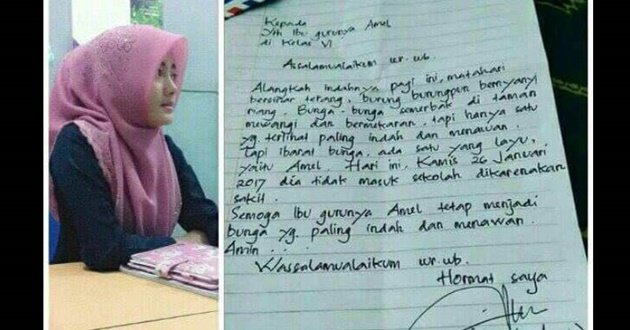 Kepada
Yth Ibu gurunya Amel
di Kelas VI
Assalamualaikum wr.wb.
Alangkah indahnya pagi ini, matahari
bersinar terang, burung burungpun bernyanyi
riang. Bunga-bunga semerbak di taman
mewangi dan bermekaran. tapi hanya satu
yg terlihat paling indah dan menawan.
Tapi ibarat bunga, ada satu yang layu,
yaitu Amel. Hari ini, Kamis 26 Januari
2017 dia tidak masuk sekolah dikarenakan
sakit.
Semoga Ibu gurunya Amel tetap menjadi
bunga yg paling indah dan menawan.
Amin . . .
Wassalamualaikum wr.wb.
Hormat saya